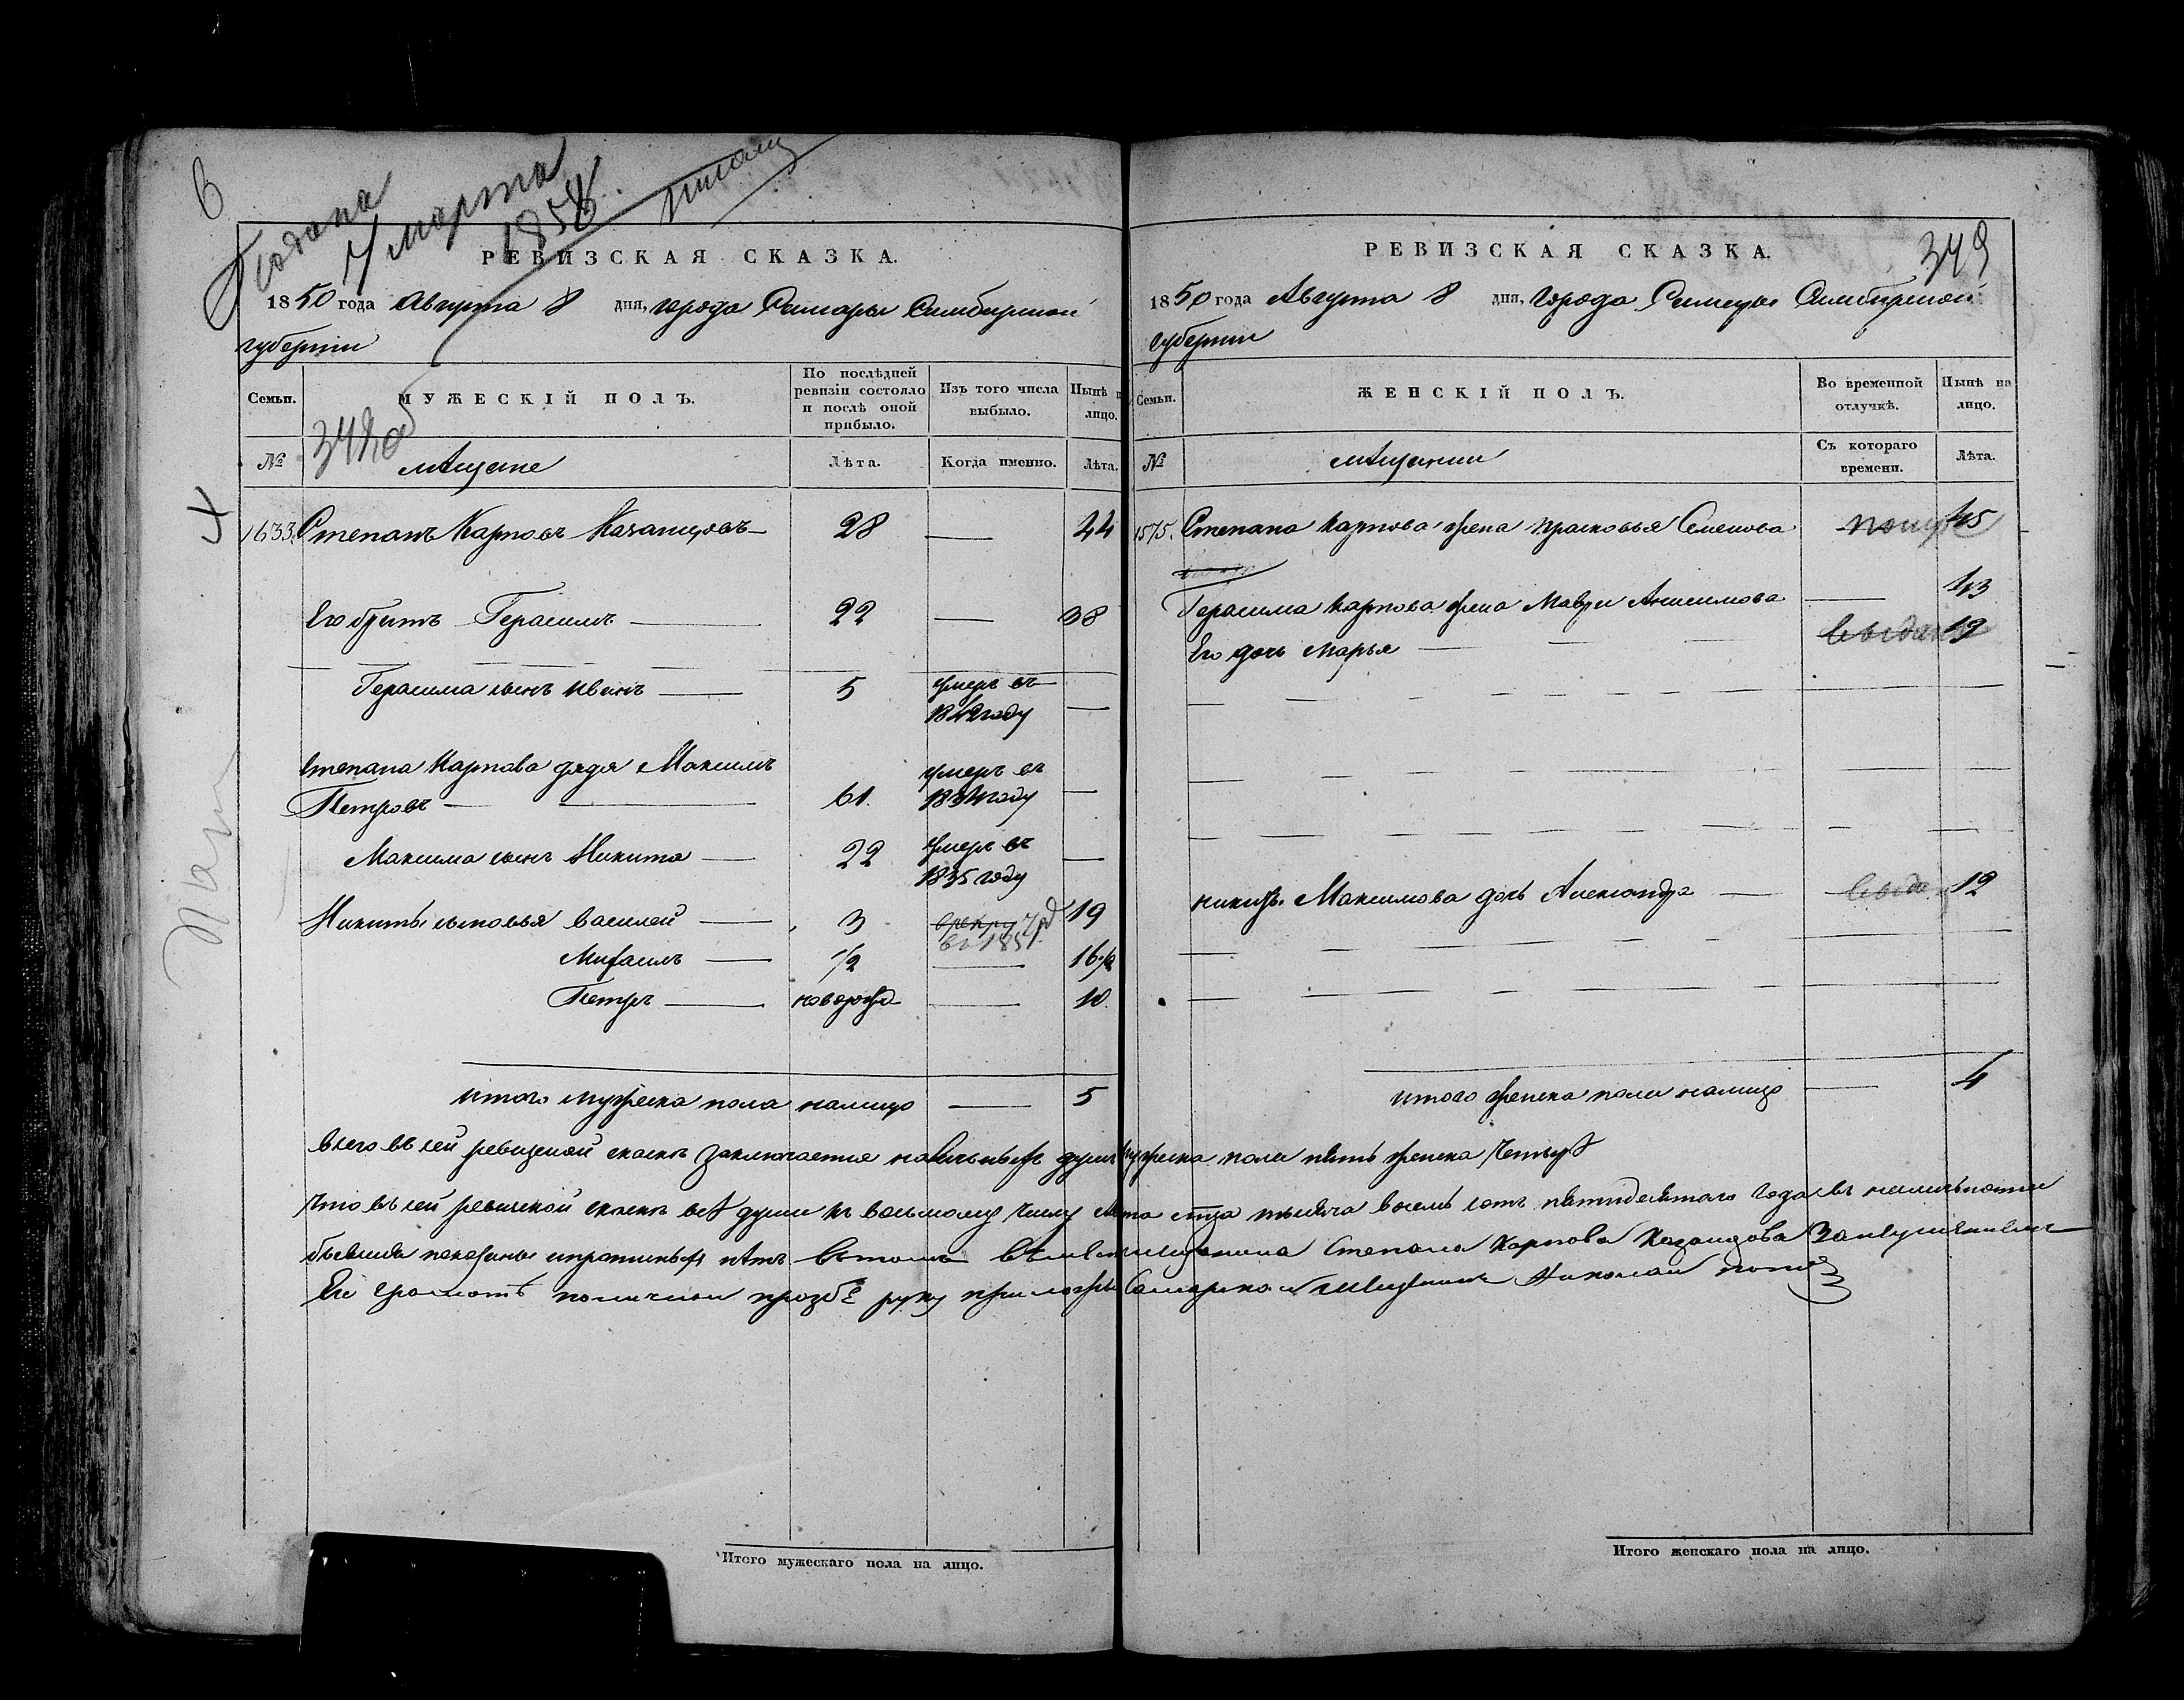 6
Подана
4 марта
1858
РЕВИЗСКАЯ СКАЗКА.
1850 года Августа 8 дня, города Самары Симбирской
губернии
Семьи. МУЖЕСКІЙ ПОЛЪ. По послѣдней ревизіи состояло и послѣ оной прибыло. Изъ того числа выбыло. Нынѣ н лицо.
348 об
№ мѣщане Лѣта. Когда именно. Лѣта.
4
1633. Степанъ Карповъ — 28 — 44
Его братъ Герасимъ — 22 — 38
Герасима сынъ Иванъ — 5 умеръ въ 1842 году —
Степана Карпова дядя Максимъ
Петровъ — 61. умеръ въ 1834 году —
Максима сынъ Никита — 22 умеръ въ 1835 году —
Никиты сыновья Василей — 3 в рекру въ 1851 19
Михаилъ — 1/2 — 16 1/2
Петръ — новорожд — 10.
итого мужеска пола налицо — 5
РЕВИЗСКАЯ СКАЗКА.
349
1850 года Августа 8 дня, города Самары Симбирской
губернии
Семьи. ЖЕНСКІЙ ПОЛЪ. Во временной отлучкѣ. Нынѣ на лицо.
№ мѣщанки Съ котораго времени. Лѣта.
1575. Степана Карпова жена Прасковья Семенова 45
Герасима Карпова жена Мавра Анисимова — 43
Его дочь Марья — выдана 19
Никиты Максимова дочь Александра — выда 12
итого женска пола налицо — 4
всего въ сей ревизской сказкѣ заключается наличныхъ душъ мужеска пола пять женска четыре
что въ сей ревизской сказкѣ всѣ души къ восьмому числу Августа тысяча восемь сотъ пятидесятаго года въ наличности
бывшия показаны и прописныхъ нѣтъ въ томъ вмѣсто мещанина Степана Карпова
Его грамотѣ по личной прозбѣ руку приложилъ Самарской Мещанинъ Николай
Итого мужескаго пола на лицо.
Итого женскаго пола на лицо.